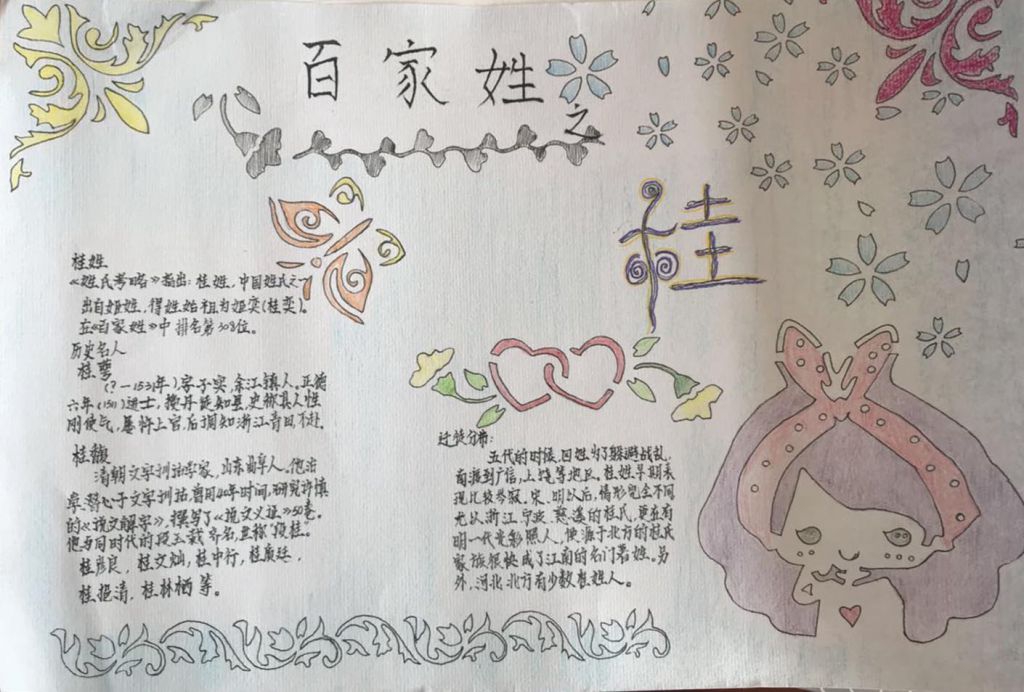 百家姓
之
桂
桂姓
《姓氏考略》指出：桂姓，中国姓氏之一
出自姬姓，得姓始祖为姬奕(桂奕)。
在《百家姓》中排名第308位。
历史名人
桂萼
(?—1531年)字子实，余江镇人。正德
六年(1511)进士，授丹徒知县，史称其人性
刚使气，屡忤上官，后调知浙江青田不赴.
桂馥
清朝文字训诂学家，山东曲阜人。他治
学,潜心于文字训诂.曾用40年时间,研究许慎
的《说文解字》，撰写了《说文义证》50卷。
他与同时代的段玉裁齐名,并称"段桂。
桂彦良，桂文灿，桂中行，桂廷,
桂挹清，桂林栖等。
迁徙分布：
五代的时候,因姓为了躲避战乱,
南迁到广信,上饶等地区。桂姓早期表
现比较势寂.宋、明以后,情形完全不同
尤以浙江宁波、慈溪的桂氏,更在有
明一代光彩照人,使源于北方的桂氏
家族很快成了江南的名门著姓。另
外,河北北方有少数桂姓人。